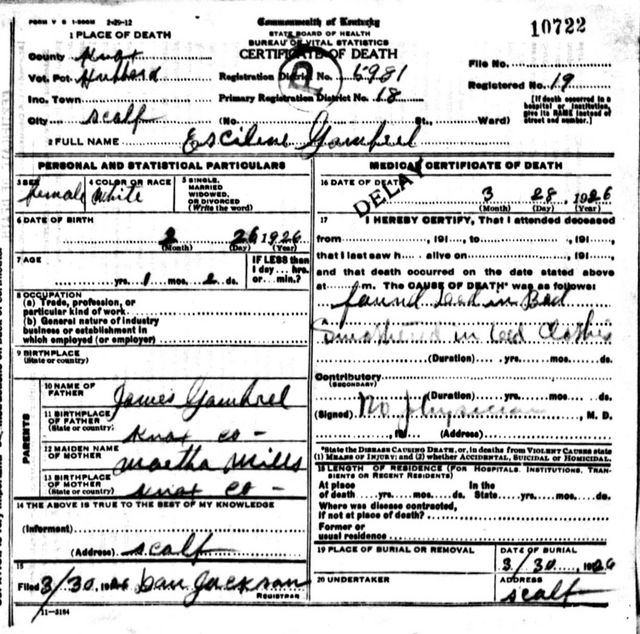 FORM V S 1-500M 2-29-12
Commonwealth of Kentucky
STATE BOARD OF HEALTH
BUREAU OF VITAL STATISTICS
CERTIFICATE OF DEATH
10722
1 PLACE OF DEATH
County Knox
Vot. Pct. Hubbard
Inc. Town
City Scalf
Registration District No. 5981
Primary Registration District No. 18
(No. St., Ward)
File No.
Registered No. 19
[If death occurred in a
hospital or institution,
give its NAME instead of
street and number.]
2 FULL NAME Esciline Gambrel
PERSONAL AND STATISTICAL PARTICULARS
3 SEX female
4 COLOR OR RACE White
5 SINGLE, MARRIED WIDOWED, OR DIVORCED (Write the word)
6 DATE OF BIRTH
2 26 1926
(Month) (Day) (Year)
7 AGE
yrs. 1 mos. 2 ds.
IF LESS than
1 day... hrs.
or... min.?
8 OCCUPATION
(a) Trade, profession, or
particular kind of work
(b) General nature of industry
business or establishment in
which employed (or employer)
9 BIRTHPLACE
(State or country)
PARENTS
10 NAME OF FATHER James Gambrel
11 BIRTHPLACE OF FATHER (State or country) Knox Co -
12 MAIDEN NAME OF MOTHER Martha Mills
13 BIRTHPLACE OF MOTHER (State or country) Knox Co -
14 THE ABOVE IS TRUE TO THE BEST OF MY KNOWLEDGE
(Informant)
(Address) Scalf
15
Filed 3/30 1926 Dan Jackson
REGISTRAR
11-3184
MEDICAL CERTIFICATE OF DEATH
DELAY
16 DATE OF DEATH
3 28, 1926
(Month) (Day) (Year)
17 I HEREBY CERTIFY, That I attended deceased
from, 191, to, 191,
that I last saw h alive on, 191,
and that death occurred on the date stated above
at m. The CAUSE OF DEATH* was as follows:
found dead in Bed
Smothered in bed Clothes
(Duration) yrs. mos. ds.
Contributory
(SECONDARY)
(Duration) yrs. mos. ds.
(Signed) No physician, M. D.
, 191 (Address)
*State the DISEASE CAUSING DEATH, or, in deaths from VIOLENT CAUSES state
(1) MEANS OF INJURY; and (2) whether ACCIDENTAL, SUICIDAL or HOMICIDAL.
18 LENGTH OF RESIDENCE (FOR HOSPITALS, INSTITUTIONS, TRANSIENTS OR RECENT RESIDENTS)
At place of death yrs. mos. ds. In the State yrs. mos. ds.
Where was disease contracted,
if not at place of death?
Former or
usual residence
19 PLACE OF BURIAL OR REMOVAL
DATE OF BURIAL
3/30 1926
20 UNDERTAKER
ADDRESS
Scalf